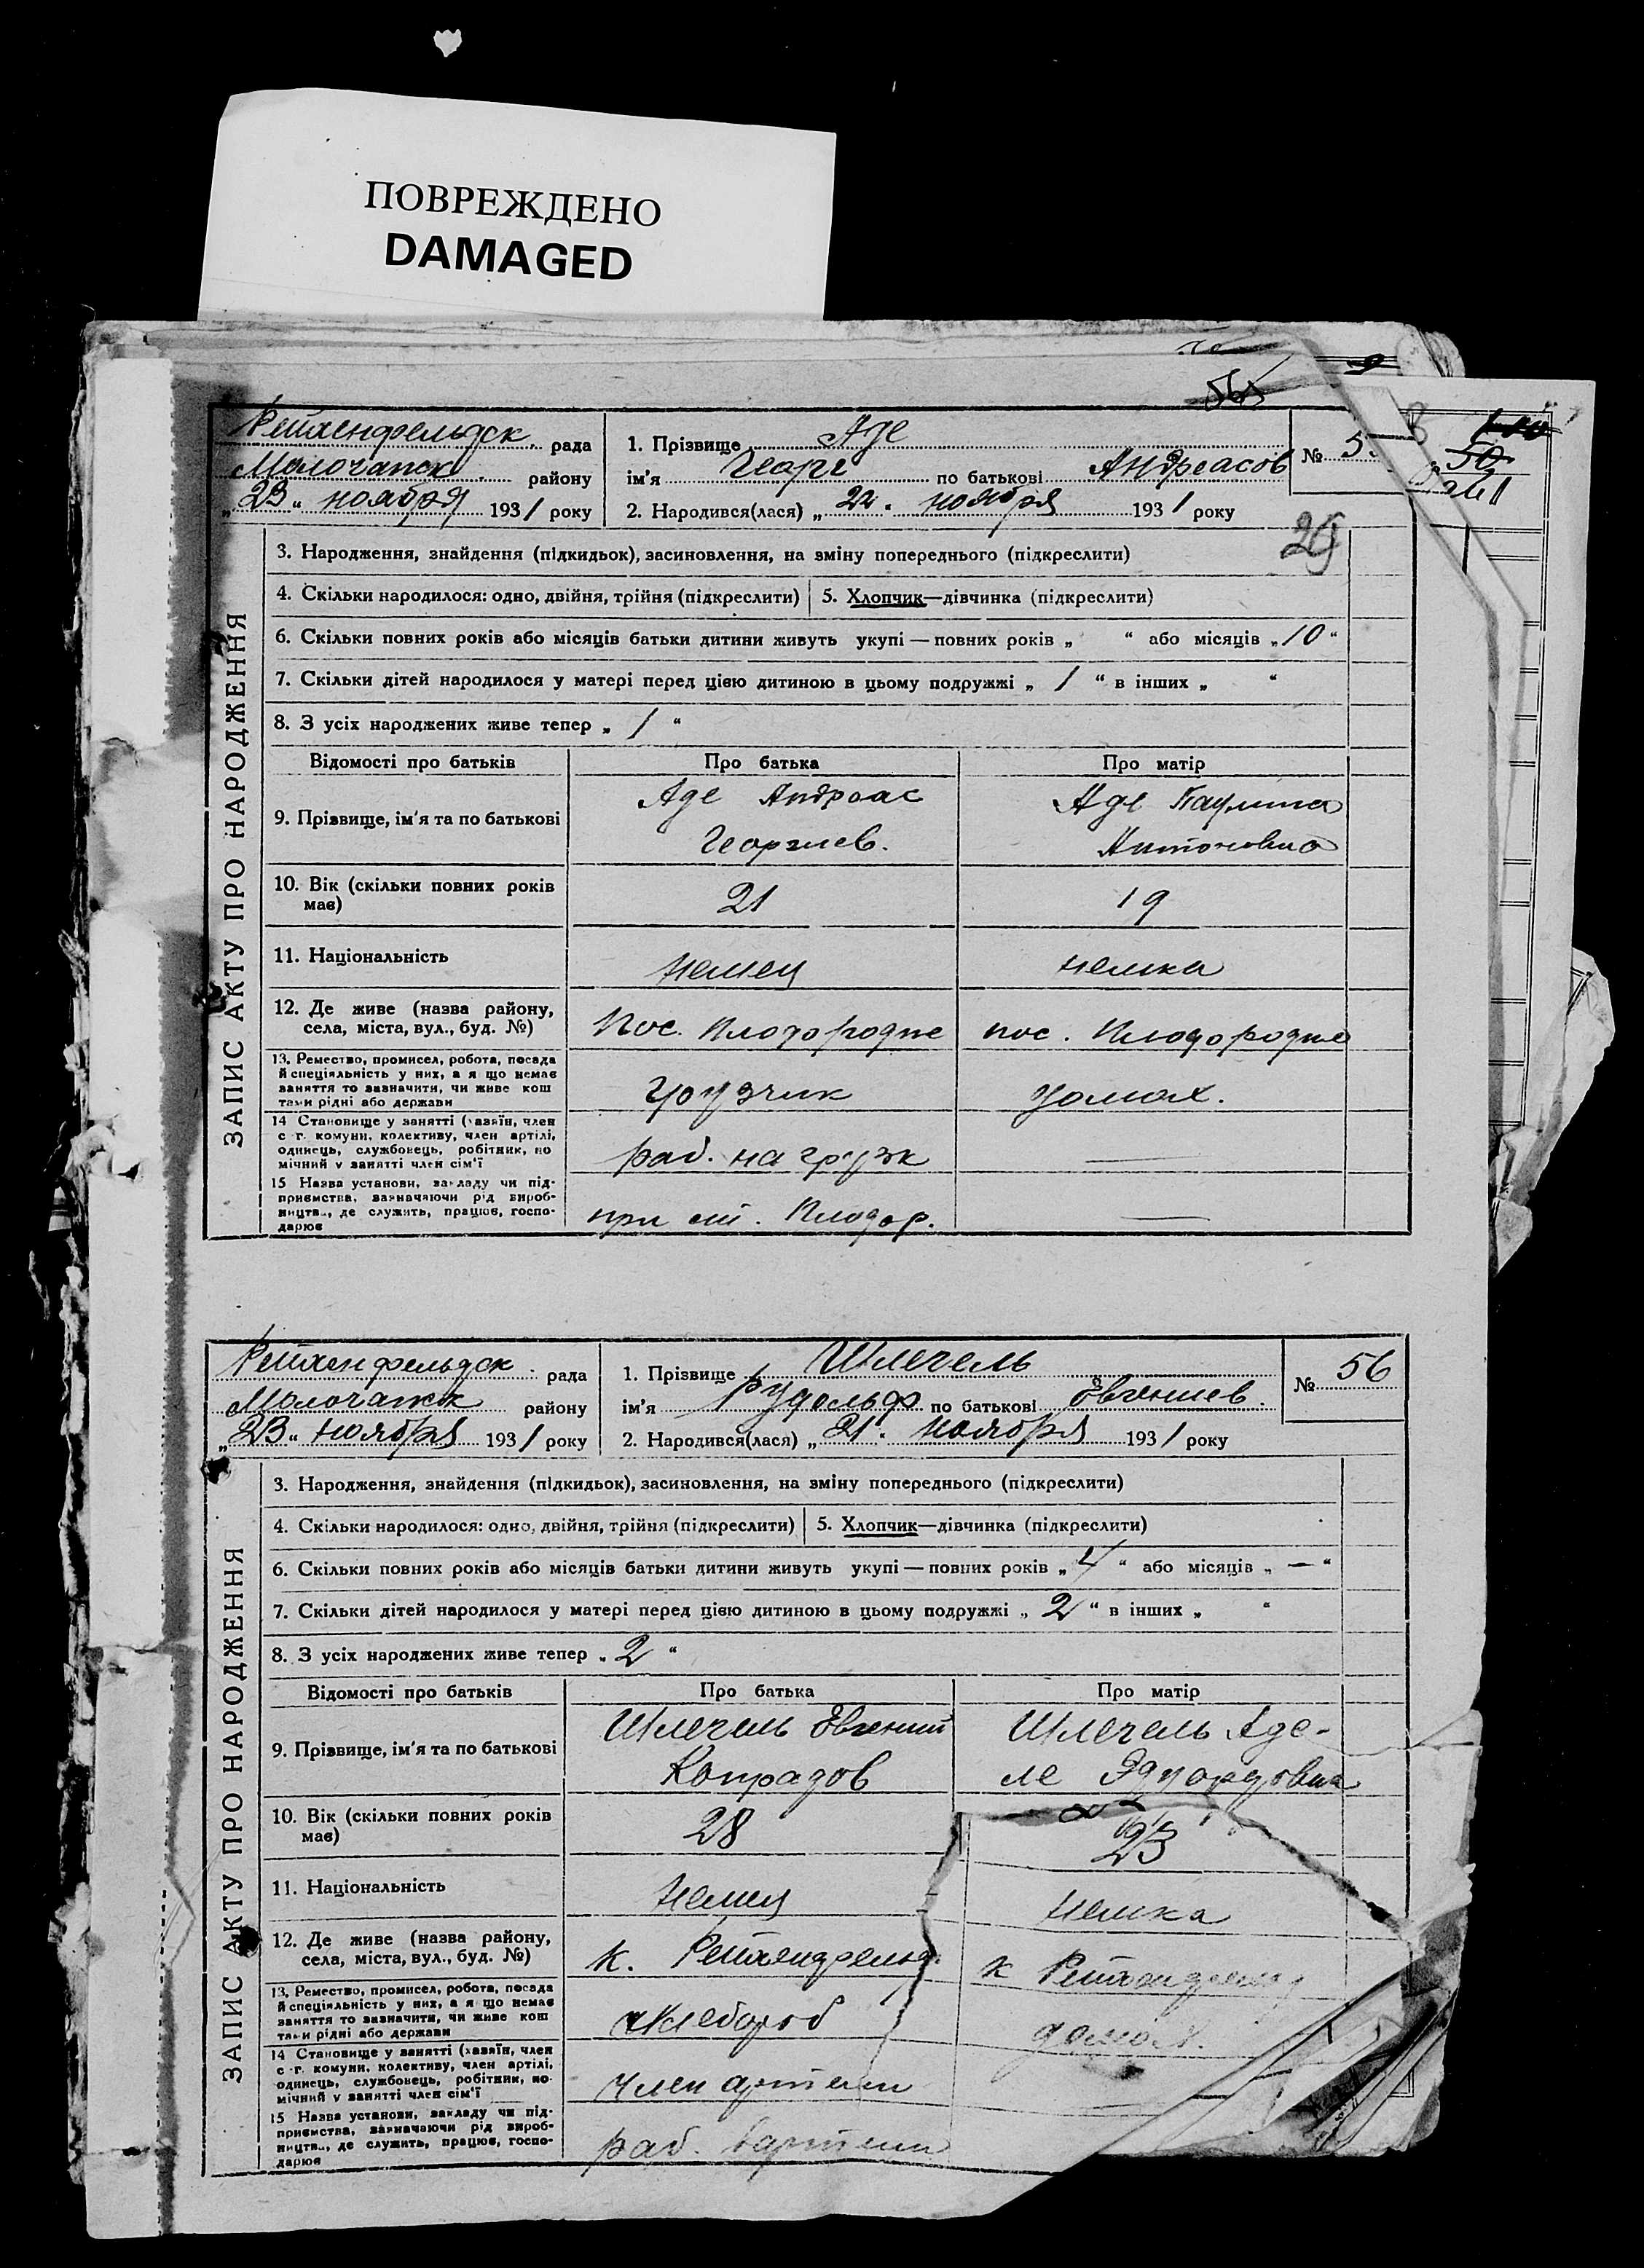 ПОВРЕЖДЕНО
DAMAGED
565
Рейхенфельдск. рада
Молочанск. району
„23“ ноября 1931 року
1. Прізвище Аде
ім'я Георг по батькові Андреасов
2. Народився(лася) „22. ноября 1931 року
№ 5
50
261
29
ЗАПИС АКТУ ПРО НАРОДЖЕННЯ
3. Народження, знайдення (підкидьок), засиновлення, на зміну попереднього (підкреслити)
4. Скільки народилося: одно, двійня, трійня (підкреслити) 5. Хлопчик—дівчинка (підкреслити)
6. Скільки повних років або місяців батьки дитини живуть укупі — повних років „ “ або місяців „10“
7. Скільки дітей народилося у матері перед цією дитиною в цьому подружжі „ 1 “ в інших „ “
8. З усіх народжених живе тепер „ 1 “
Відомості про батьків Про батька Про матір
9. Прізвище, ім'я та по батькові
Аде Андреас
Георгиев.
Аде Паулина
Антоновна
10. Вік (скільки повних років
має)
21
19
11. Національність
немец
немка
12. Де живе (назва району,
села, міста, вул., буд. №)
пос. Плодородие
пос. Плодородие
13. Ремество, промисел, робота, посада
й спеціяльність у них, а я що немає
заняття то зазначити, чи живе кош
тами рідні або держави
грузчик
домах.
14 Становище у занятті (хазяїн, член
с г. комуни, колективу, член артілі,
одинець, службовець, робітник, по
мічний у занятті член сім'ї
раб. на грузк
—
15 Назва установи, закладу чи під-
приємства, зазначаючи рід вироб-
ництва, де служить, працює, госпо-
дарює
при ст. Плодор.
—
Рейхенфельдск. рада
Молочанск району
„23“ ноября 1931 року
1. Прізвище Шлегель
ім'я Рудольф по батькові Евгениев.
2. Народився(лася) „21. ноября 1931 року
№ 56
ЗАПИС АКТУ ПРО НАРОДЖЕННЯ
3. Народження, знайдення (підкидьок), засиновлення, на зміну попереднього (підкреслити)
4. Скільки народилося: одно, двійня, трійня (підкреслити) 5. Хлопчик—дівчинка (підкреслити)
6. Скільки повних років або місяців батьки дитини живуть укупі — повних років „4“ або місяців „—“
7. Скільки дітей народилося у матері перед цією дитиною в цьому подружжі „ 2 “ в інших „ “
8. З усіх народжених живе тепер „2 “
Відомості про батьків Про батька Про матір
9. Прізвище, ім'я та по батькові
Шлегель Евгений
Конрадов
Шлегель Аде-
ле Эдуардовна
10. Вік (скільки повних років
має)
28
23
11. Національність
немец
немка
12. Де живе (назва району,
села, міста, вул., буд. №)
к. Рейхенфельд.
к Рейхенфельд
13. Ремество, промисел, робота, посада
й спеціяльність у них, а я що немає
заняття то зазначити, чи живе кош
тами рідні або держави
хлебороб
домох.
14 Становище у занятті (хазяїн, член
с г. комуни, колективу, член артілі,
одинець, службовець, робітник, по-
мічний у занятті член сім'ї
член артели
15 Назва установи, закладу чи під-
приємства, зазначаючи рід вироб-
ництва, де служить, працює, госпо-
дарює
раб. в артели